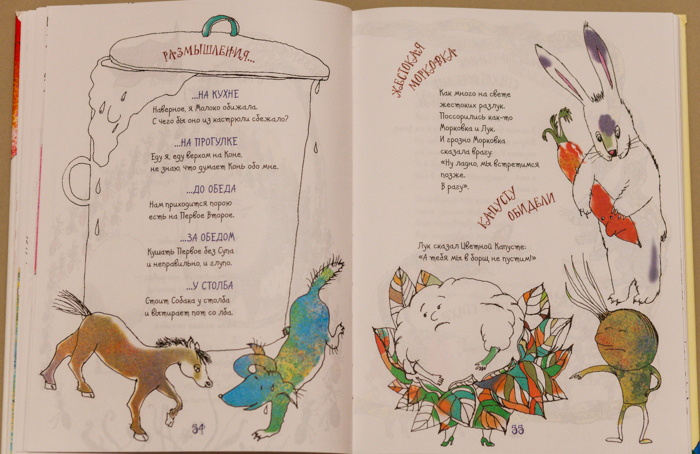 РАЗМЫШЛЕНИЯ...
...НА КУХНЕ
Наверное, я Молоко обижала.
С чего бы оно из кастрюли сбежало?
...НА ПРОГУЛКЕ
Еду я, еду верхом на Коне,
не знаю, что думает Конь обо мне.
...ДО ОБЕДА
Нам приходится порою
есть на Первое Второе.
...ЗА ОБЕДОМ
Кушать Первое без Супа
и неправильно, и глупо.
...У СТОЛБА
Стоит Собака у столба
и вытирает пот со лба.
54
ЖЕСТОКАЯ
МОРКОВКА
Как много на свете
жестоких разлук.
Поссорились как-то
Морковка и Лук.
И грозно Морковка
сказала врагу:
«Ну ладно, мы встретимся
позже.
В рагу».
КАПУСТУ
ОБИДЕЛИ
Лук сказал Цветной Капусте:
«А тебя мы в борщ не пустим!»
55